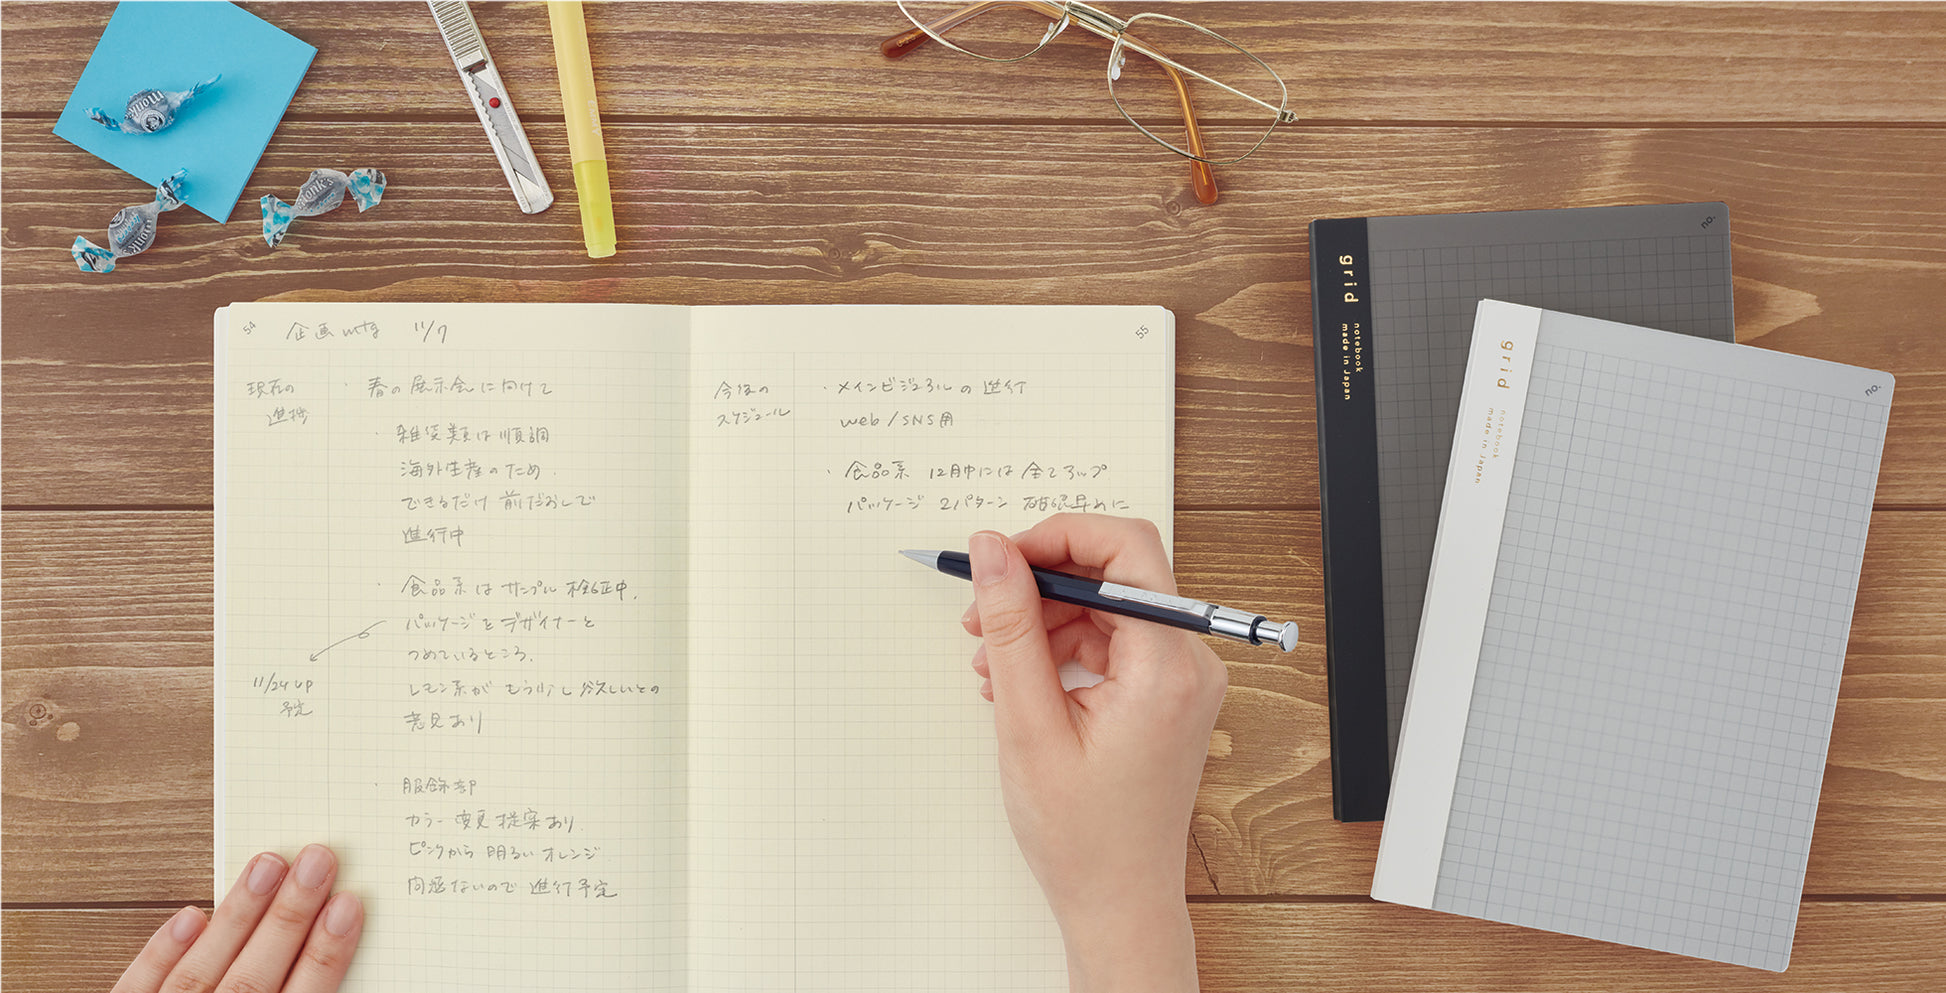 monk's
monk's
monk's
54
企画mtg 11/7
現在の
進捗
・春の展示会に向けて
・雑貨類は順調
海外生産のため
できるだけ前だおしで
進行中
・食品系はサンプル検証中.
パッケージをデザイナーと
つめているところ.
レモン系がもう少し欲しいとの
意見あり
11/24 up
予定
・服飾部
カラー変更提案あり.
ピンクから明るいオレンジ
問題ないので進行予定
55
今後の
スケジュール
・メインビジュアルの進行
web/SNS用
・食品系 12月中には全てアップ
パッケージ 2パターン 確認早めに
grid
notebook
made in Japan
no.
grid
notebook
made in Japan
no.